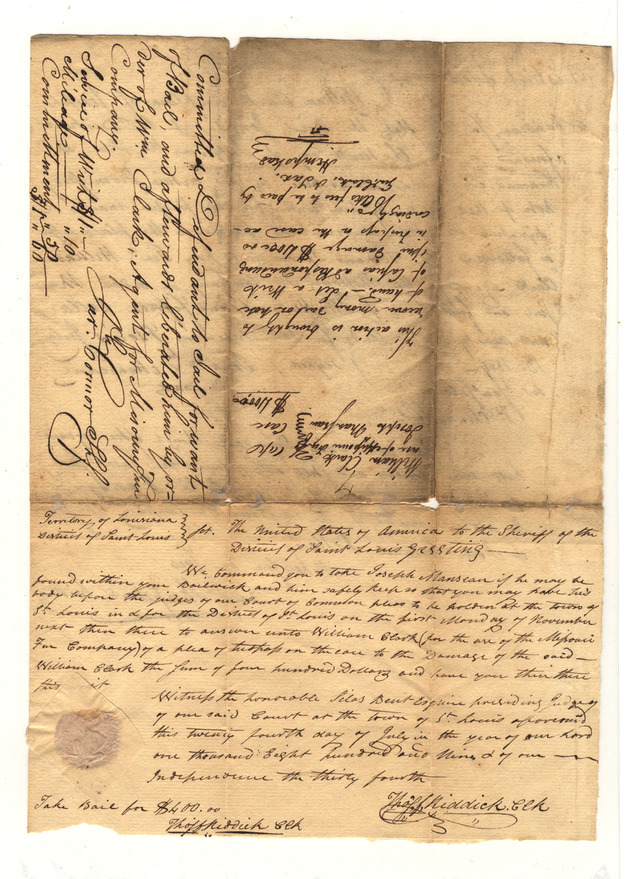 Committed Defendant to Jail for want
of Bail, and afterwards liberated him by or-
der of Wm Clark, Agent for Missouri Fur
Company.
Service of Writ $1"–
Mileage " 10
Commitment " 50
$1 " 60
Car: Connor Shf.
William Clark
Case
Joseph Manseau
$400.00
This action is brought to
recover money had and
of Capias ad Respondendum
in trespass on the case ac-
cordingly
Hempstead
Territory of Louisiana
District of Saint Louis
Sct. The United States of America to the Sheriff of the
District of Saint Louis Greeting —
We Command you to take Joseph Manseau if he may be
found within your Bailiwick and him safely keep so that you may have his
body before the judges of our Court of Common pleas to be holden at the town of
St Louis in & for the District of St Louis on the first Monday of November
next then there to answer unto William Clark (for the use of the Missouri
Fur Company) of a plea of trespass on the case to the Damage of the said –
William Clark the sum of four hundred Dollars and have you then there
this writ
Witness the honorable Silas Bent Esquire presiding Judge
of our said Court at the town of St Louis aforesaid
this twenty fourth day of July in the year of our Lord
one thousand Eight hundred and Nine & of our —
Independence the thirty fourth
Take Bail for $400.00
Thos F Riddick Clk
Thos F Riddick Clk